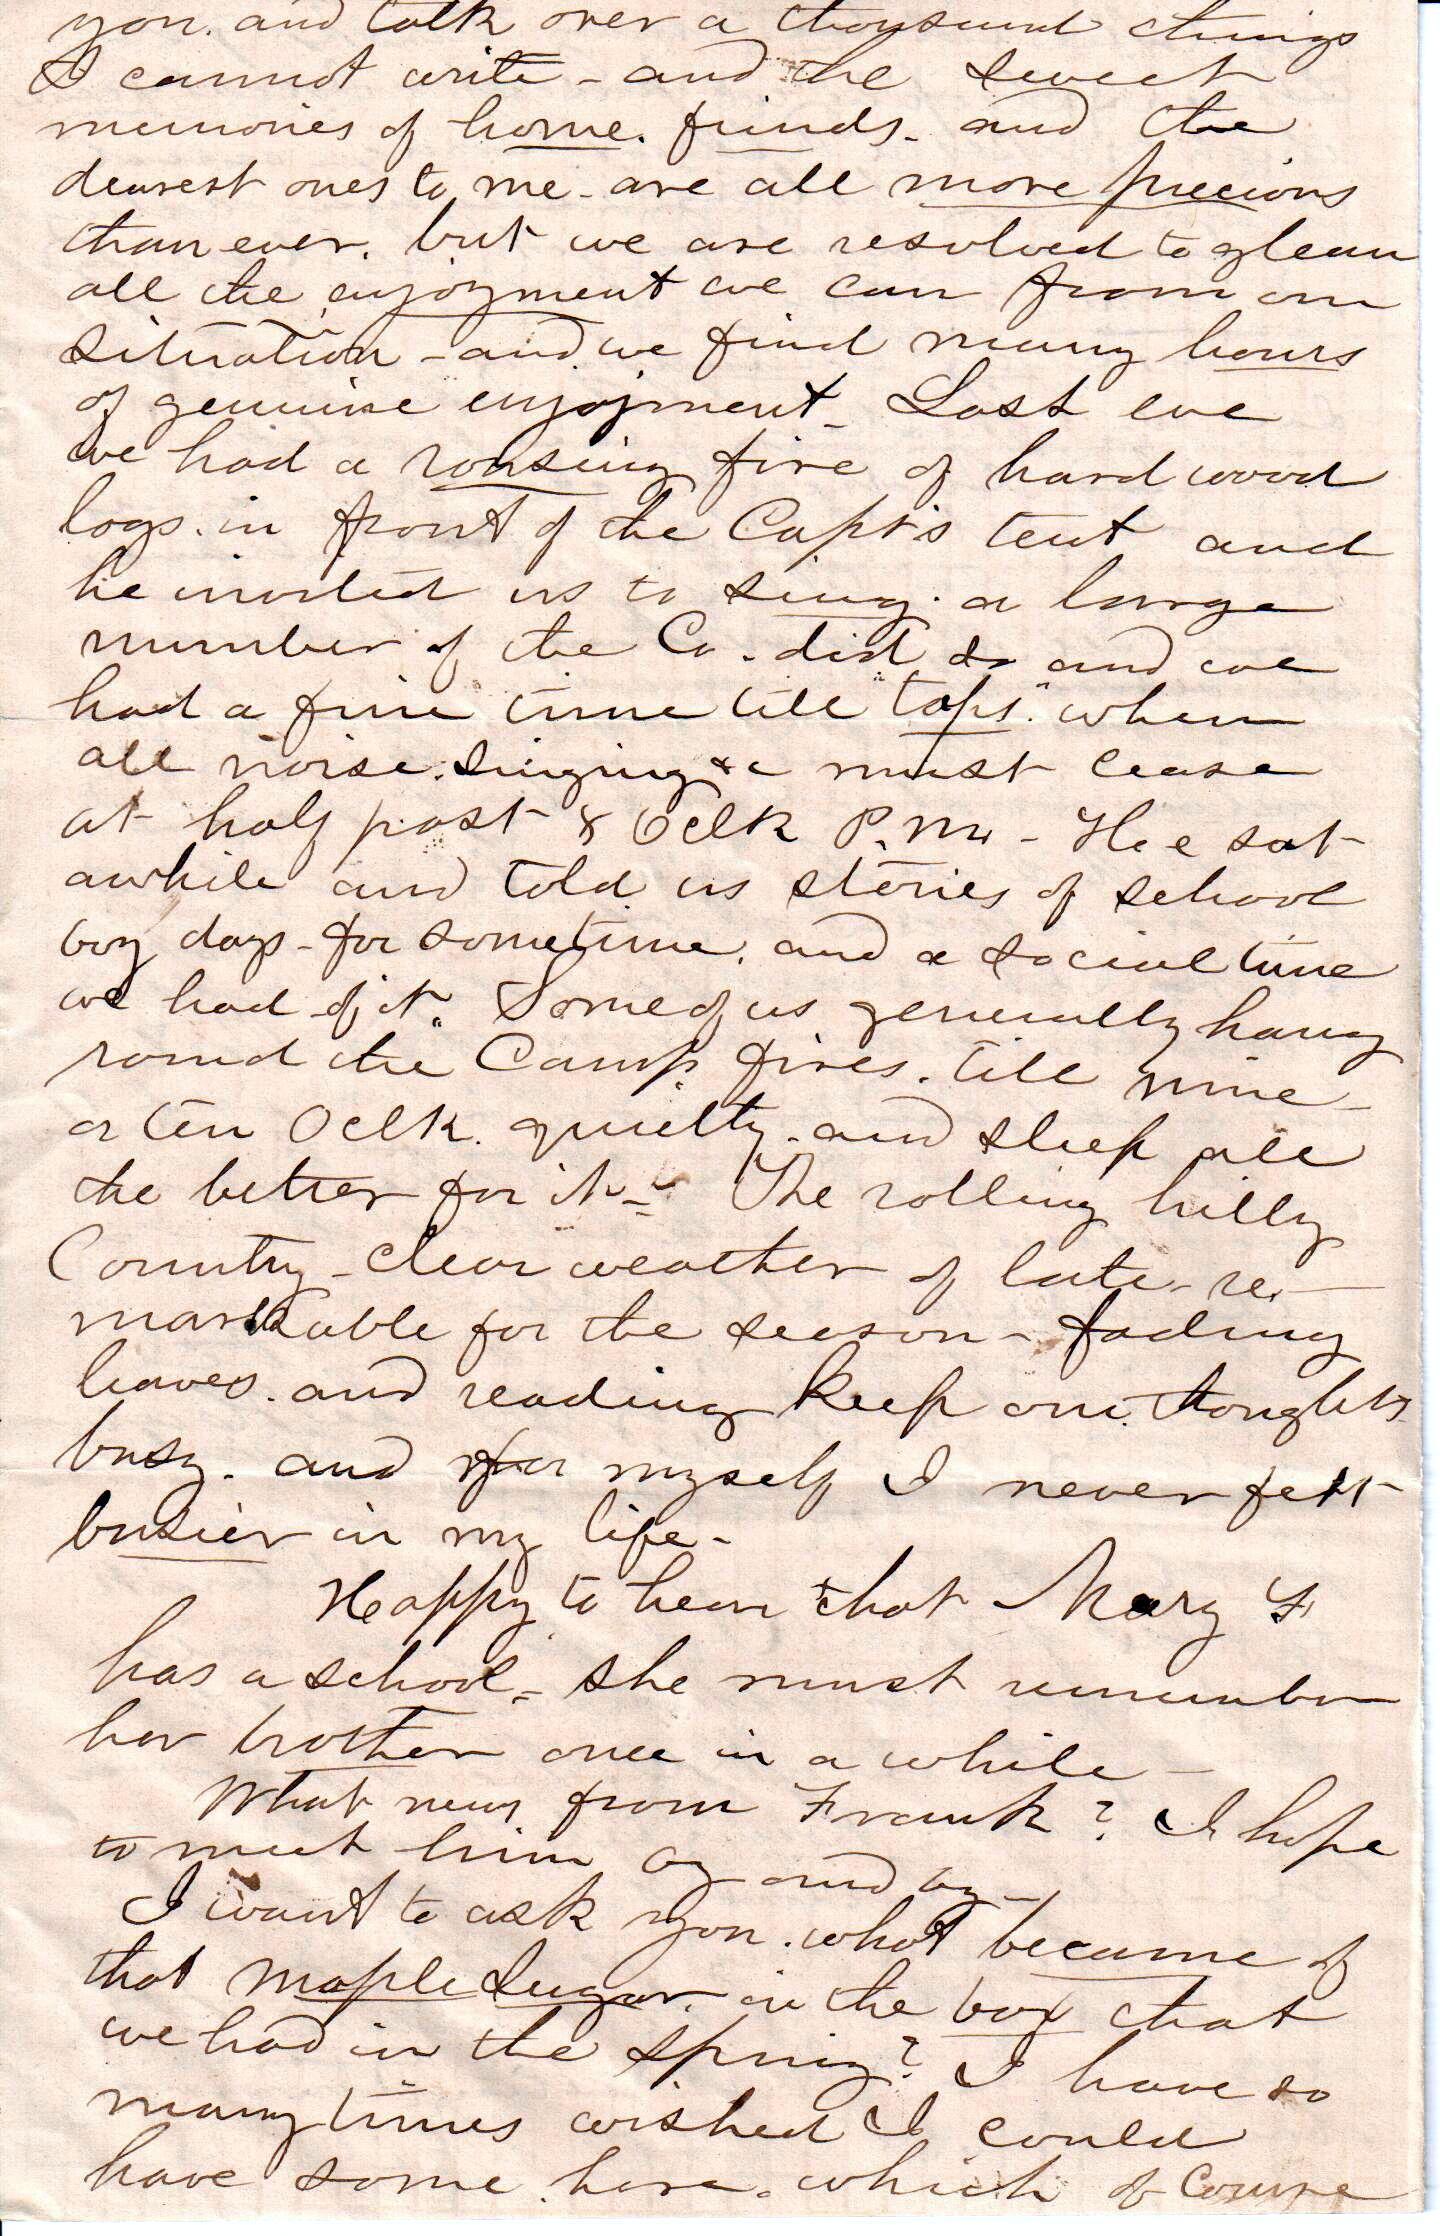 you. and talk over a thousand things
I cannot write - and the sweet
memories of home. friends. and the
dearest ones to me - are all more precious
than ever. but we are resolved to glean
all the enjoyment we can from our
situation - and we find many hours
of genuine enjoyment - Last eve
we had a rousing fire of hard wood
logs. in front of the Capt's tent and
he invited us to sing. a large
number of the Co. did so and we
had a fine time till "taps" when
all noise. singing &c must cease
at half past 8 Oclk P.M. - He sat
awhile and told us stories of school
boy days - for sometime. and a social time
we had of it. Some of us generally hang
round the Camp fires. till nine -
or ten Oclk. quietly - and sleep all
the better for it - The rolling hilly
Country - clear weather of late - re -
markable for the season - fading
leaves. and reading keep our thoughts
busy. and for myself I never felt
busier in my life -
Happy to hear that Mary F
has a school - she must remember
her brother once in a while -
What news from Frank? I hope
to meet him by and by -
I want to ask you. what became of
that maple sugar. in the box that
we had in the spring? I have so
many times wished I could
have some here. which of course